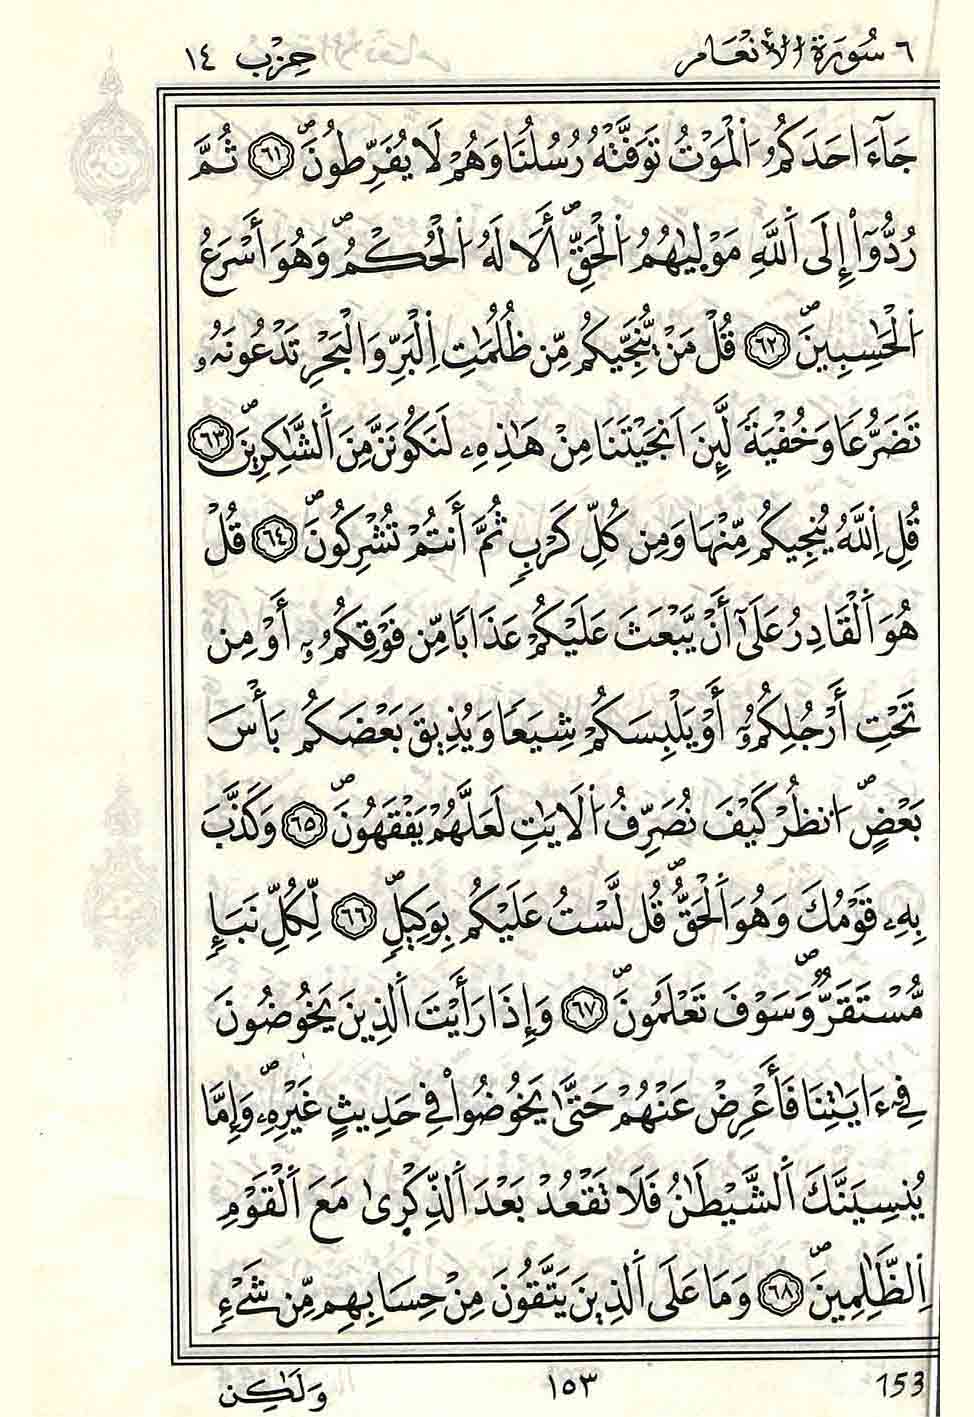 ٦ سُورَةُ الْأَنْعَامِ حِزْب ١٤
جَآءَ احَدَكُمُ اُ۬لْمَوْتُ تَوَفَّتْهُ رُسُلُنَا وَهُمْ لَا يُفَرِّطُونَۖ ٦١ ثُمَّ
رُدُّوٓاْ إِلَى اَ۬للَّهِ مَوْل۪يٰهُمُ اُ۬لْحَقِّۖ أَلَا لَهُ اُ۬لْحُكْمُۖ وَهُوَ أَسْرَعُ
اُ۬لْحَٰسِبِينَۖ ٦٢ قُلْ مَنْ يُّنَجِّيكُم مِّن ظُلُمَٰتِ اِ۬لْبَرِّ وَالْبَحْرِ تَدْعُونَهُۥ
تَضَرُّعاٗ وَخُفْيَةٗ لَّئِنَ اَنجَيْتَنَا مِنْ هَٰذِهِۦ لَنَكُونَنَّ مِنَ اَ۬لشَّٰكِرِينَۖ ٦٣
قُلِ اِ۬للَّهُ يُنجِيكُم مِّنْهَا وَمِن كُلِّ كَرْبٖ ثُمَّ أَنتُمْ تُشْرِكُونَۖ ٦٤ قُلْ
هُوَ اَ۬لْقَادِرُ عَلَىٰٓ أَنْ يَّبْعَثَ عَلَيْكُمْ عَذَاباٗ مِّن فَوْقِكُمُۥٓ أَوْ مِن
تَحْتِ أَرْجُلِكُمُۥٓ أَوْ يَلْبِسَكُمْ شِيَعاٗ وَيُذِيقَ بَعْضَكُم بَأْسَ
بَعْضٍۖ اُ۟نظُرْ كَيْفَ نُصَرِّفُ اُ۬لَايَٰتِ لَعَلَّهُمْ يَفْقَهُونَۖ ٦٥ وَكَذَّبَ
بِهِۦ قَوْمُكَ وَهُوَ اَ۬لْحَقُّۖ قُل لَّسْتُ عَلَيْكُم بِوَكِيلٖۖ ٦٦ لِّكُلِّ نَبَإٖ
مُّسْتَقَرّٞۖ وَسَوْفَ تَعْلَمُونَۖ ٦٧ وَإِذَا رَأَيْتَ اَ۬لذِينَ يَخُوضُونَ
فِےٓ ءَايَٰتِنَا فَأَعْرِضْ عَنْهُمْ حَتَّىٰ يَخُوضُواْ فِے حَدِيثٍ غَيْرِهِۦۖ وَإِمَّا
يُنسِيَنَّكَ اَ۬لشَّيْطَٰنُ فَلَا تَقْعُدْ بَعْدَ اَ۬لذِّكْر۪ىٰ مَعَ اَ۬لْقَوْمِ
اِ۬لظَّٰلِمِينَۖ ٦٨ وَمَا عَلَى اَ۬لذِينَ يَتَّقُونَ مِنْ حِسَابِهِم مِّن شَےْءٖ
153 ١٥٣ وَلَٰكِن